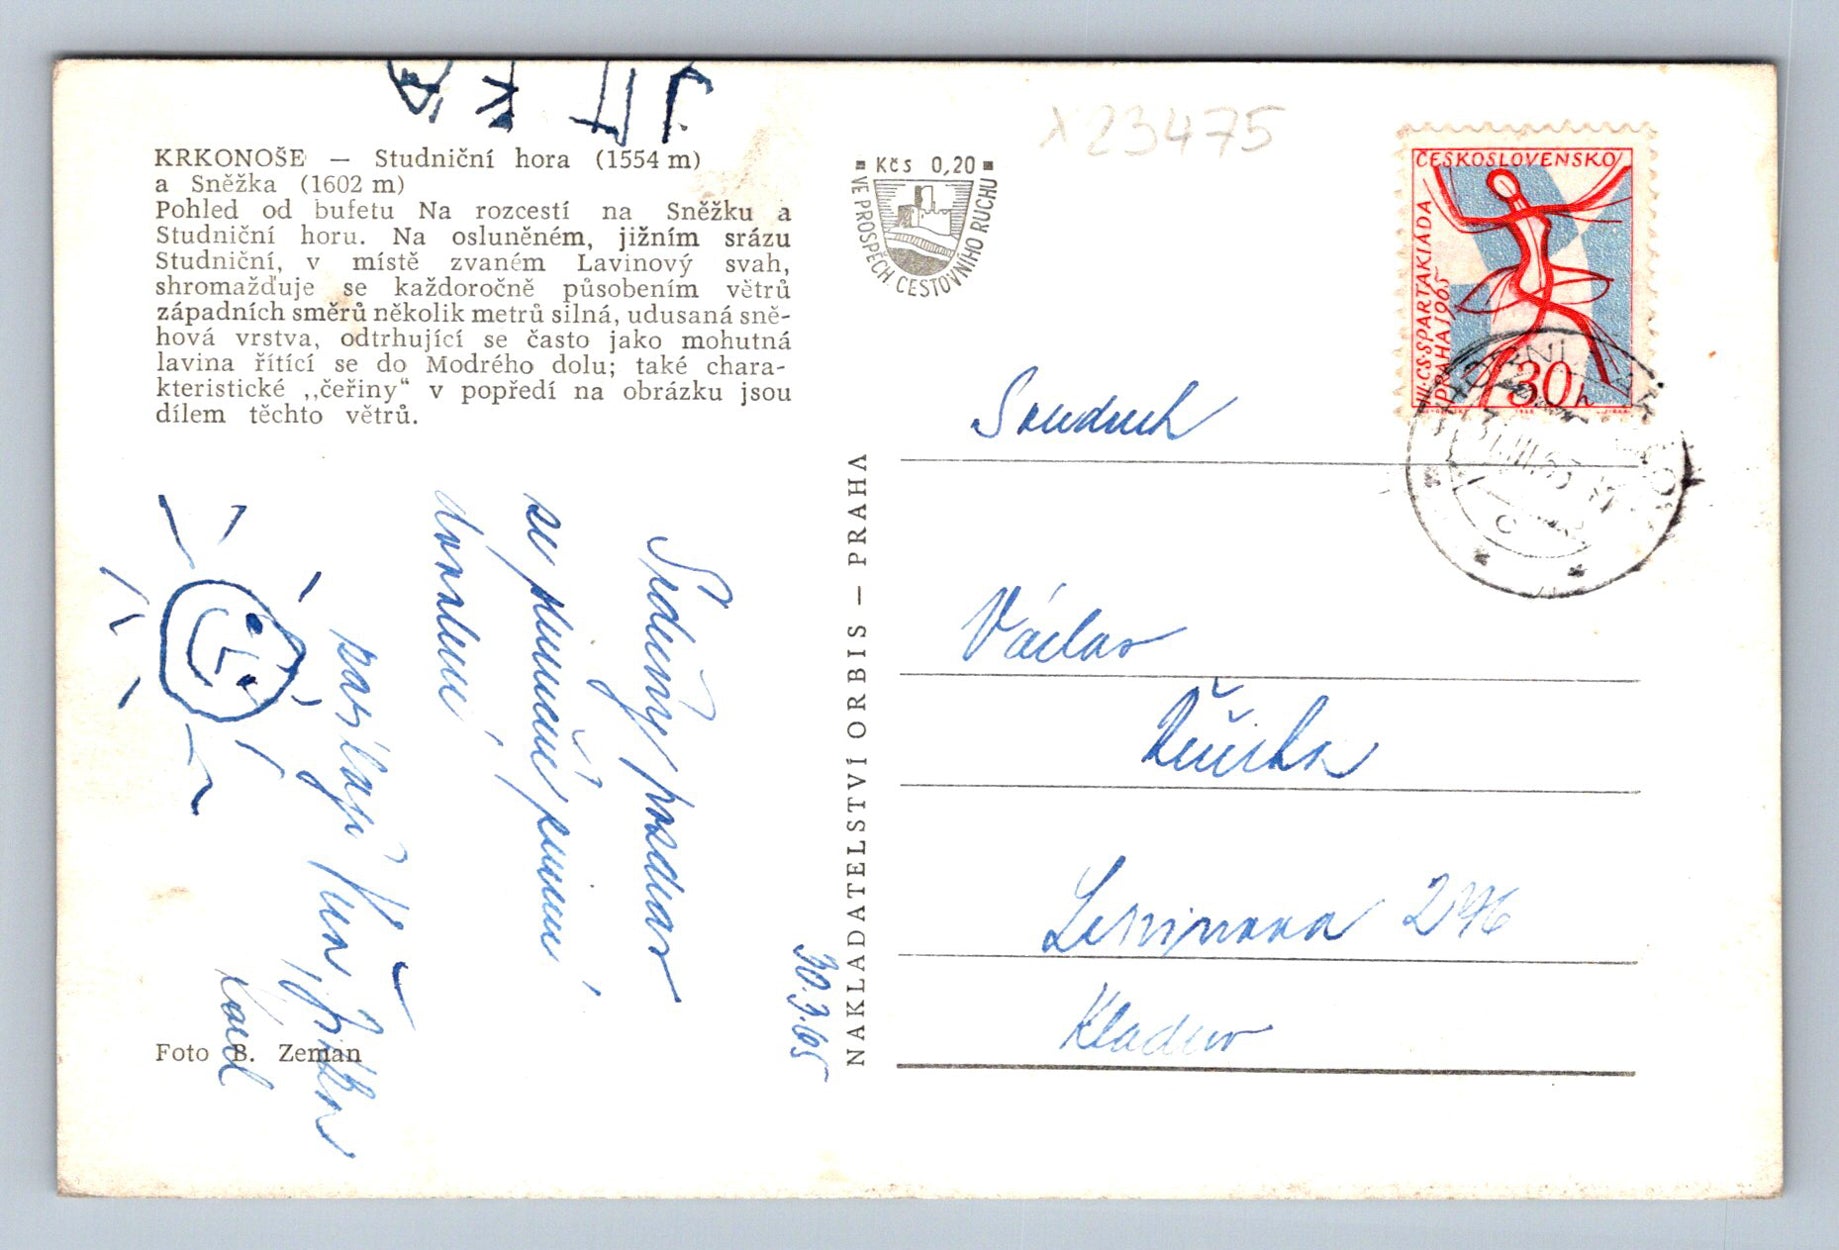 JITKA
KRKONOŠE — Studniční hora (1554 m)
a Sněžka (1602 m)
Pohled od bufetu Na rozcestí na Sněžku a
Studniční horu. Na osluněném, jižním srázu
Studniční, v místě zvaném Lavinový svah,
shromažďuje se každoročně působením větrů
západních směrů několik metrů silná, udusaná sně-
hová vrstva, odtrhující se často jako mohutná
lavina řítící se do Modrého dolu; také chara-
kteristické ,,čeřiny“ v popředí na obrázku jsou
dílem těchto větrů.
Srdečný pozdrav
se
posílají
Foto B. Zeman
30.3.65
NAKLADATELSTVÍ ORBIS — PRAHA
Kčs 0,20
VE PROSPĚCH CESTOVNÍHO RUCHU
23475
ČESKOSLOVENSKO
III. CS. SPARTAKIÁDA
PRAHA 1965
30 h
Soudruh
Václav
Leninova 296
Kladno